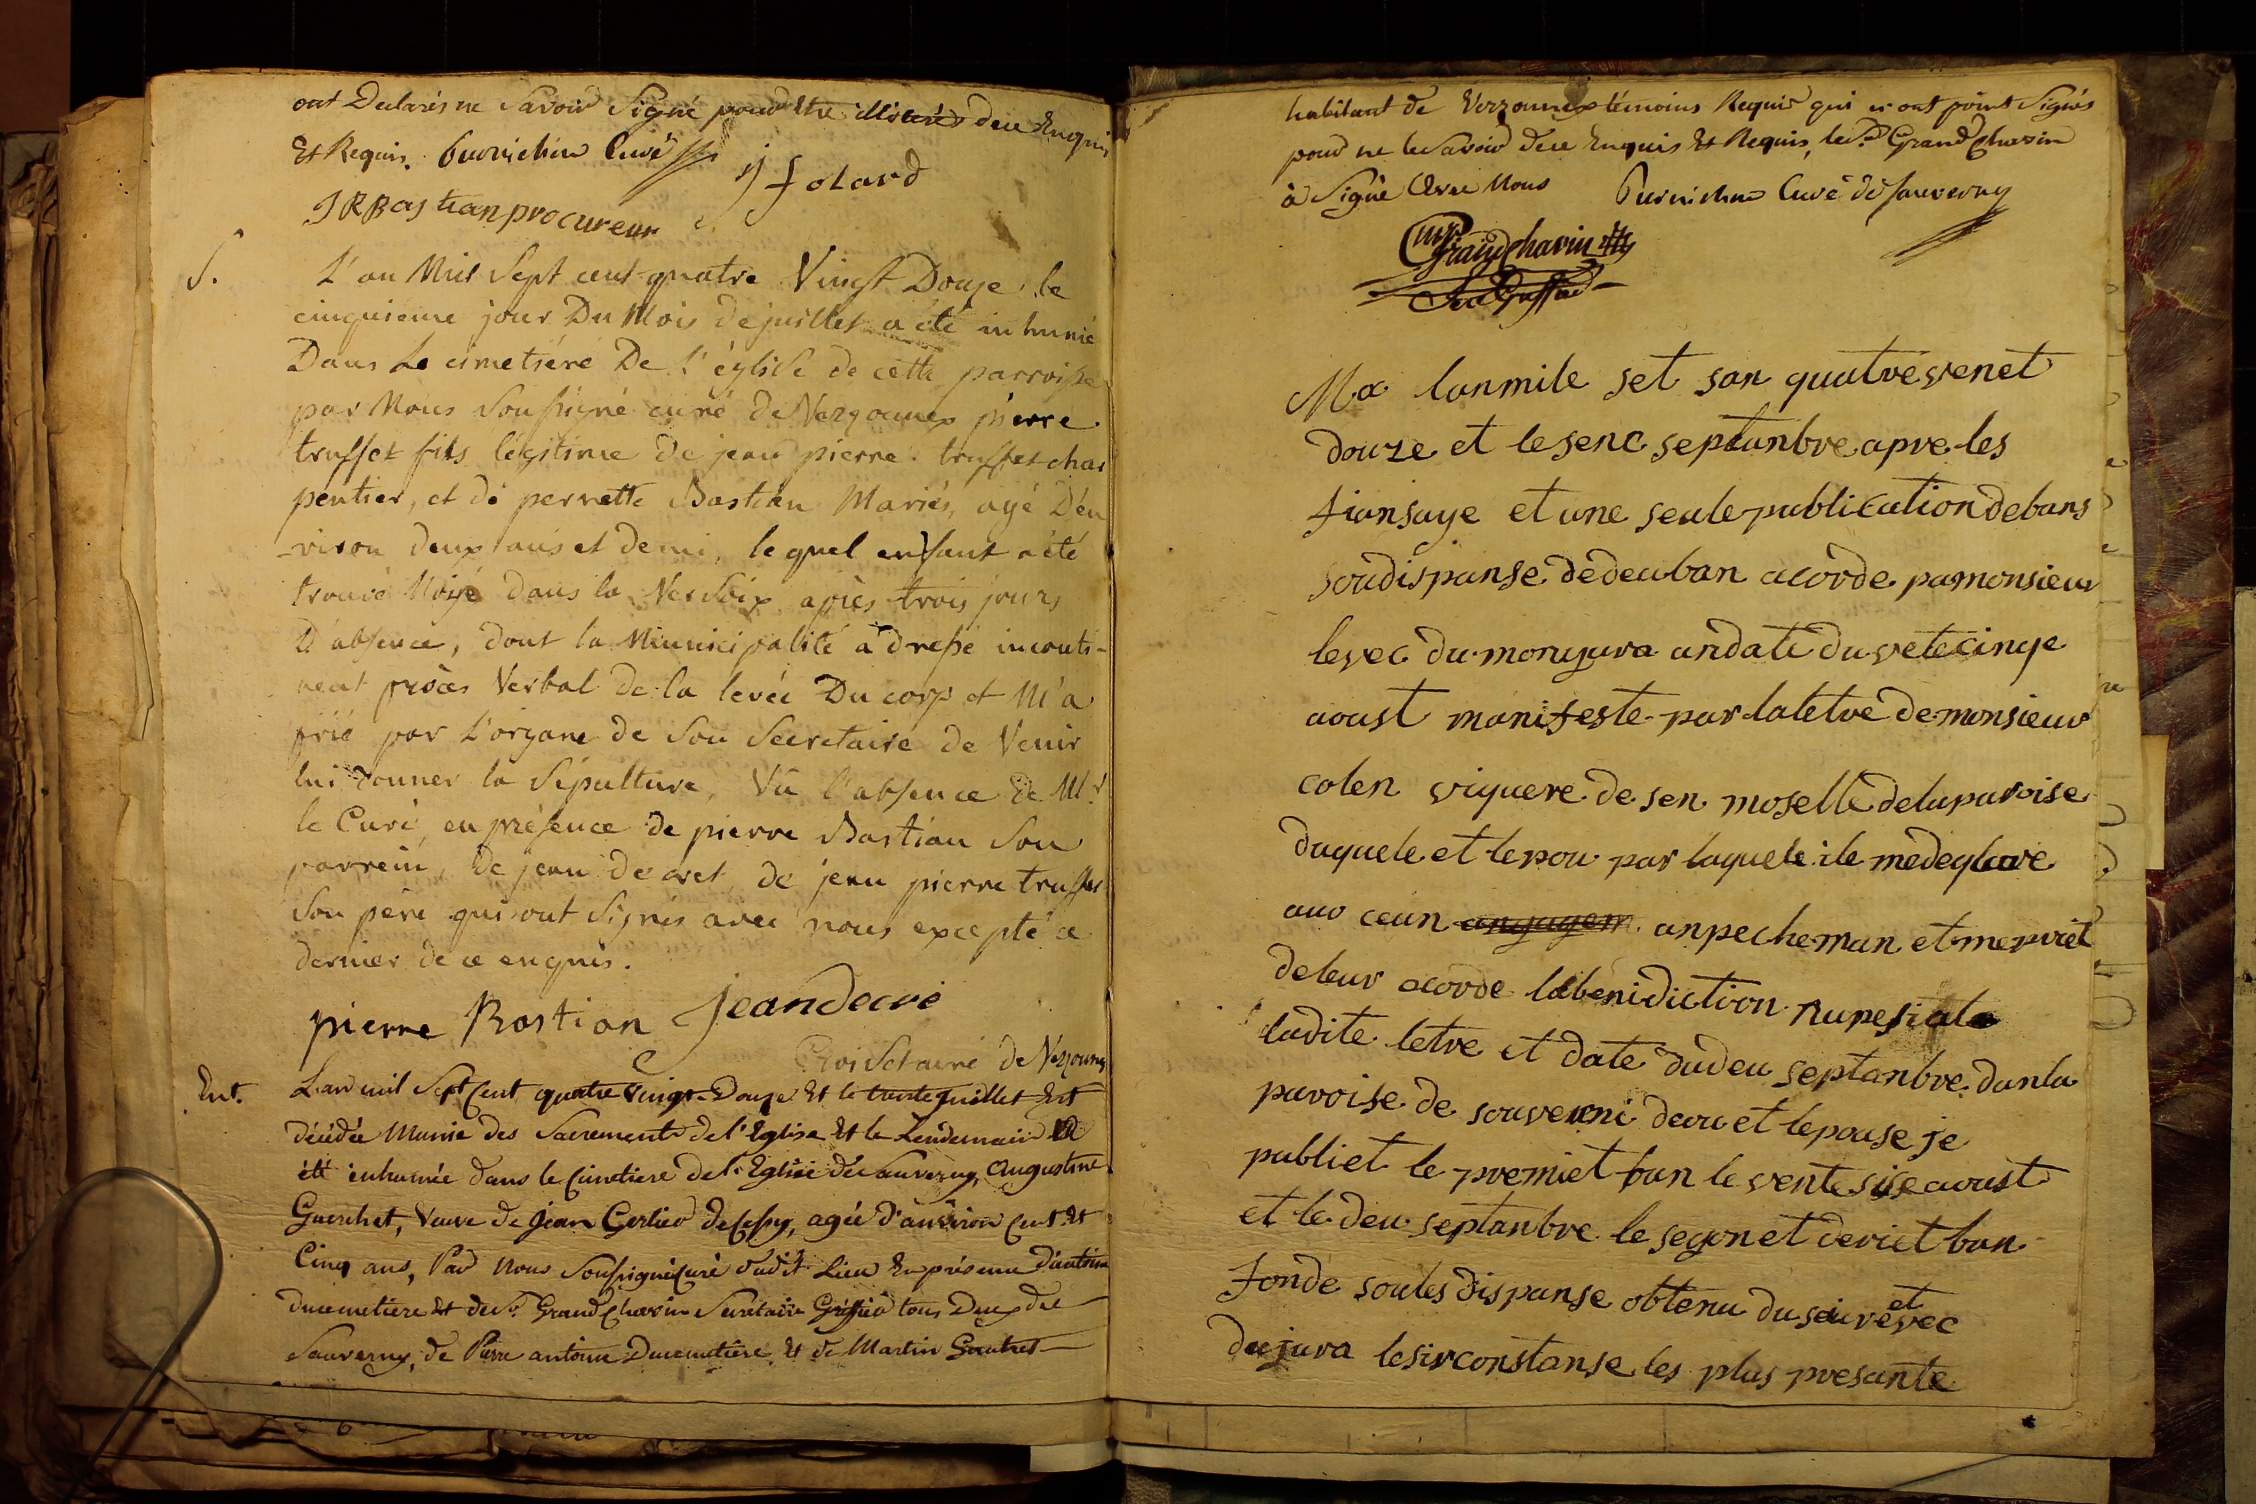 ont Declarés ne Savoir Signé pour Etre illiterés dece Enquis
Et Requis. Curé
j folard
J R Bastian procureur
S.
L'an Mil Sept cent quatre Vingt Douze, le
cinquieme jour Du Mois de juillet a été inhumé
Dans Le cimetiére De l'église de cette parroisse
par Nous Soussigné curé de Verzonnex pierre
truffet fils légitime de jean pierre truffet char
pentier, et de pernette Bastian Mariés, agé D'en
-viron deux ans et demi, lequel enfant a été
trouvé Noyé dans la Versoix après trois jours
D'absence, dont la Municipalité a dressé inconti-
nent procès Verbal de la levée Du corp et M'a
prié par l'organe de Son Secretaire de Venir
lui donner la Sépulture, Vû l'absence de Mr
le Curé, en présence de pierre Bastian Son
parrein, De jean decret, de jean pierre truffet
Son pére qui ont Signés avec nous excepté ce
dernier de ce enquis.
pierre Bastian Jean decré
de Verzonnex
Ent.
L'an mil Sept Cent quatre vingt Douze Et le trente juillet Est
décédée Munie des Sacrements de l'Eglise Et le Lendemain a
été inhumée dans le Cimetiere de l'Eglise de Sauverny, Augustine
Guerchet, Veuve de Jean Gerlier de Cessy, agée d'environ Cent Et
Cinq ans, Par Nous Soussigné Curé dudit Lieu En présence D'antoine
Ducimetiere Et de Sr. Grandchavin Secrétaire Greffier tous Deux de
Sauverny, de Pierre antoine Ducimetiere, Et de Martin Gautret
habitant de Verzonnex témoins Requis qui n'ont point Signés
pour ne le Savoir dece Enquis Et Requis, le Sr. Grand Chavin
à Signé Avec Nous Curé de Sauverny
Grandchavin
Sec Greffier
Ma lanmile set san quatre venet
douze et le senc septanbre apre les
fiansaye et une seule publication de bans
sou dispanse de deu ban acorde pa monsieur
levec du monjura an date du vetecinqe
aoust manifeste par la letre de monsieur
colen viquere de sen moselle de la paroise
duquele et lepou par laquele ile me deqlare
auo ceun anpecheman et me priet
de leur acorde la benidiction nupesiale
ladite letre et date du deu septanbre dan la
paroise de souverni deou et lepouse je
publiet le premiet ban le vente sise aoust
et le deu septanbre le segon et deriet ban
fonde sou les dispanse obtenu du seiur et evec
du jura le sirconstanse les plus presante